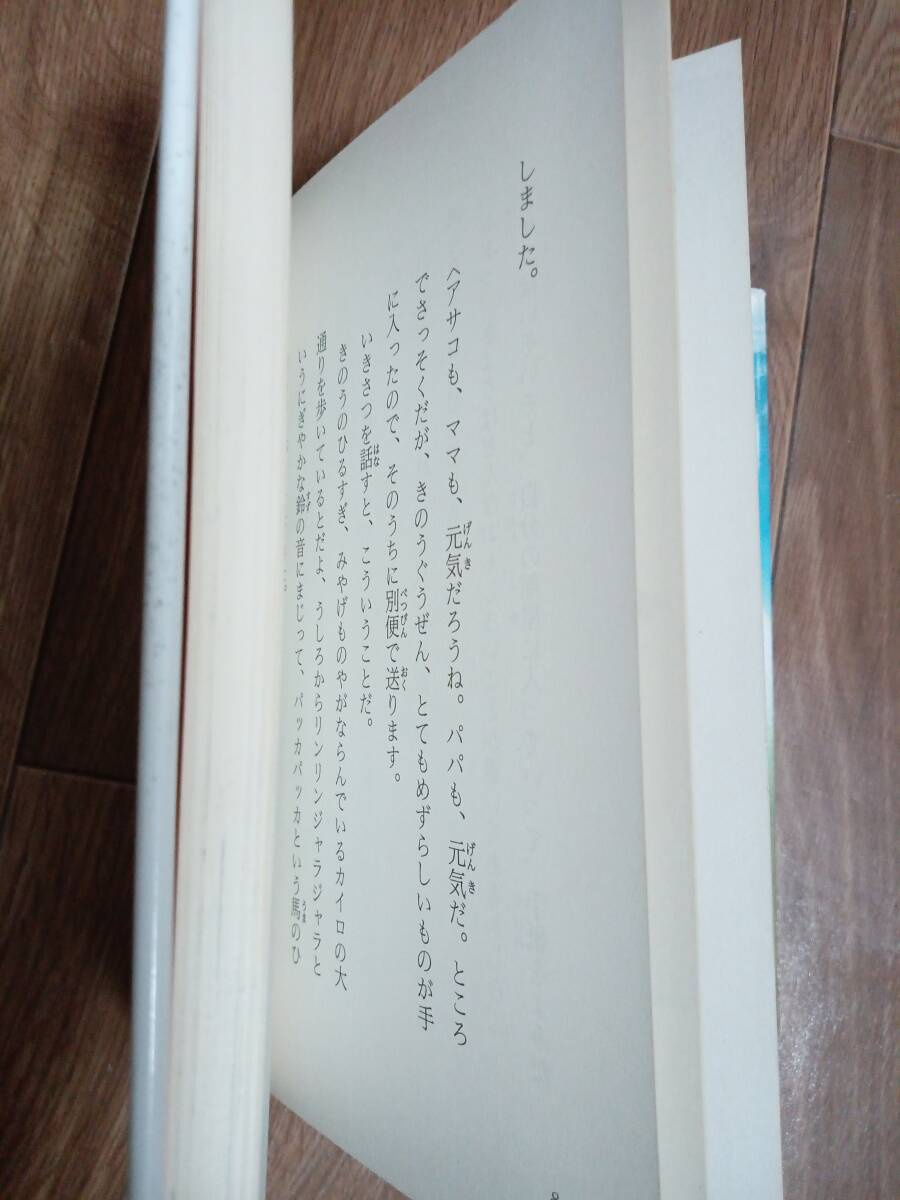 しました。
〈アサコも、ママも、元気だろうね。パパも、元気だ。ところ
でさっそくだが、きのうぐうぜん、とてもめずらしいものが手
に入ったので、そのうちに別便で送ります。
いきさつを話すと、こういうことだ。
きのうのひるすぎ、みやげものやがならんでいるカイロの大
通りを歩いているとだよ、うしろからリンリンジャラジャラと
いうにぎやかな鈴の音にまじって、パッカパッカという馬のひ